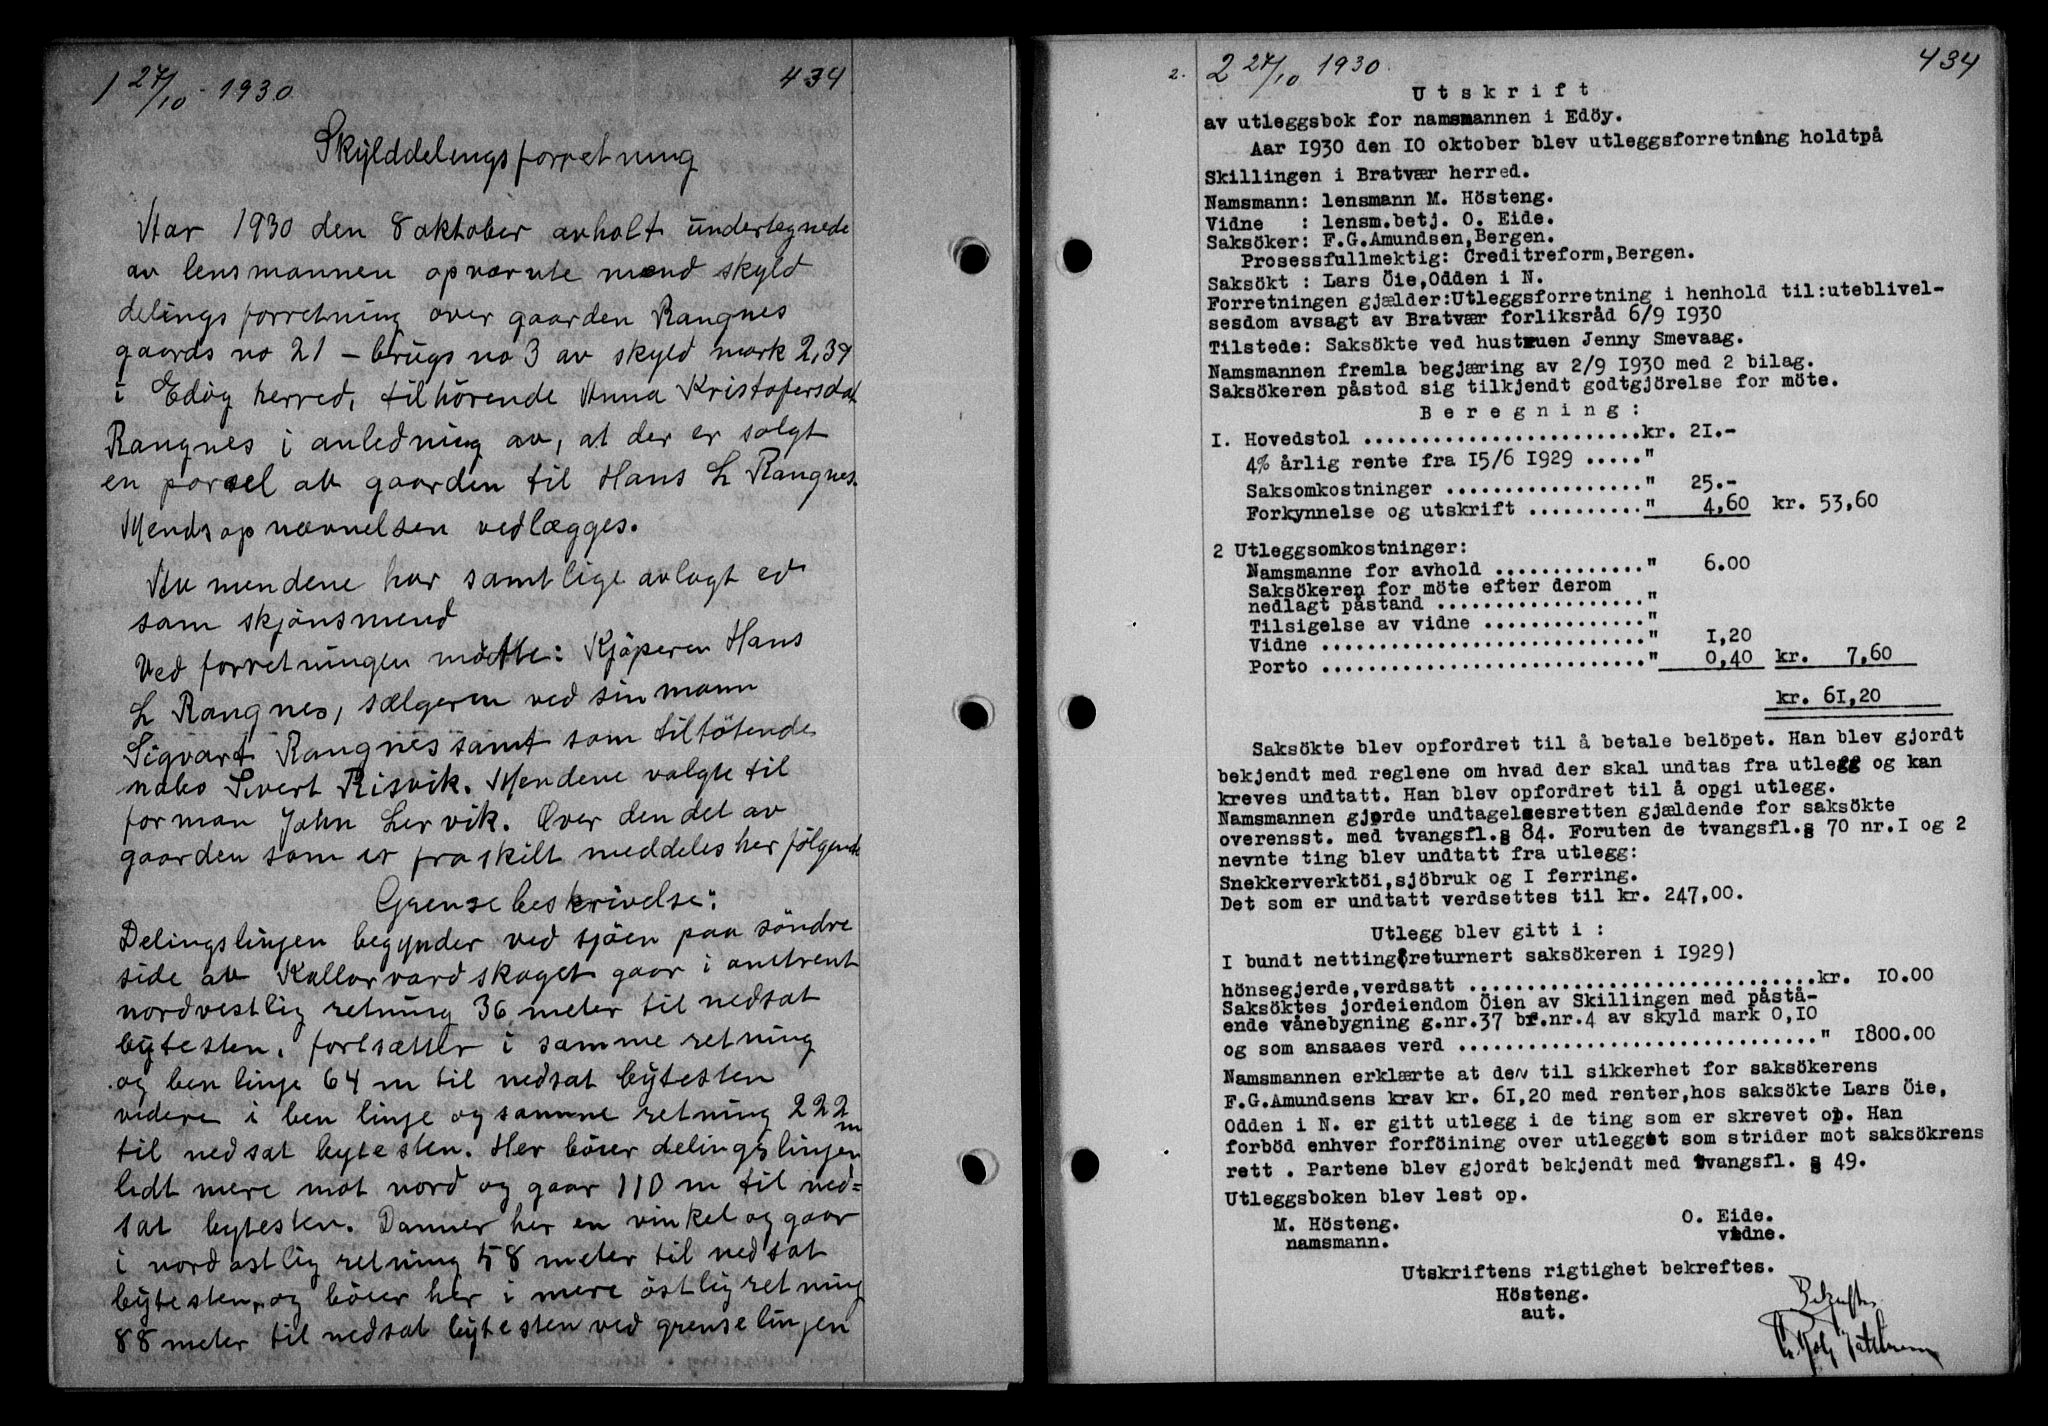 1 27/10 - 1930 434
Skylddelingsforretning
Aar 1930 den 8 oktober avholt undertegnede
av lensmannen opnævnte mænd skyld
delings forretning over gaarden Rangnes
gaards no 21 - brugs no 3 av skyld mark 2,39
i Edöy herred, tilhörende Anna Kristofersdat
Rangnes i anledning av, at der er solgt
en parsel av gaarden til Hans L Rangnes.
Mendsopnævnelsen vedlægges.
Av mendene har samtlige avlagt ed
som skjönsmend
Ved forretningen mötte: Kjöperen Hans
L Rangnes, sælgeren ved sin mann
Sigvart Rangnes samt som tilstötende
nabo Sivert Risvik. Mendene valgte til
forman John Lervik. Over den del av
gaarden som er fraskilt meddeles her følgende
Grensebeskrivelse:
Delingslinjen begynder ved sjöen paa söndre
side av Kallarvardskaget gaar i omtrent
nordvestlig retning 36 meter til nedsat
bytesten, fortsætter i samme retning
og ben linje 64 m til nedsat bytesten
videre i ben linje og samme retning 222 m
til nedsat bytesten. Her böier delingslinjen
lidt mere mot nord og gaar 110 m til ned=
sat bytesten. Danner her en vinkel og gaar
i nordøstlig retning 58 meter til nedsat
bytesten, og böier her i mere östlig retning
88 meter til nedsat bytesten ved grenselinjen
2. 2 27/10 1930 434
Utskrift
av utleggsbok for namsmannen i Edöy.
Aar 1930 den 10 oktober blev utleggsforretning holdtpå
Skillingen i Bratvær herred.
Namsmann: lensmann M. Hösteng.
Vidne : lensm.betj. O. Eide.
Saksöker: F.G.Amundsen,Bergen.
Prosessfullmektig: Creditreform,Bergen.
Saksökt : Lars Öie,Odden i N.
Forretningen gjælder:Utleggsforretning i henhold til:uteblivel-
sesdom avsagt av Bratvær forliksråd 6/9 1930
Tilstede: Saksökte ved hustruen Jenny Smevaag.
Namsmannen fremla begjæring av 2/9 1930 med 2 bilag.
Saksökeren påstod sig tilkjendt godtgjörelse for möte.
Beregning:
1. Hovedstol ........................kr. 21.-
4% årlig rente fra 15/6 1929 ....."
Saksomkostninger ................." 25.-
Forkynnelse og utskrift .........." 4,60 kr. 53,60
2 Utleggsomkostninger:
Namsmanne for avhold ............." 6.00
Saksökeren for möte efter derom
nedlagt påstand .................."
Tilsigelse av vidne .............."
Vidne ............................" 1,20
Porto ............................" 0,40 kr. 7,60
kr. 61,20
Saksökte blev opfordret til å betale belöpet. Han blev gjordt
bekjendt med reglene om hvad der skal undtas fra utlegg og kan
kreves undtatt. Han blev opfordret til å opgi utlegg.
Namsmannen gjorde undtagelsesretten gjældende for saksökte
overensst. med tvangsfl.§ 84. Foruten de tvangsfl.§ 70 nr.1 og 2
nevnte ting blev undtatt fra utlegg:
Snekkerverktöi,sjöbruk og 1 ferring.
Det som er undtatt verdsettes til kr. 247,00.
Utlegg blev gitt i :
1 bundt netting(returnert saksökeren i 1929)
hönsegjerde,verdsatt ..............................kr. 10.00
Saksöktes jordeiendom Öien av Skillingen med påstå-
ende vånebygning g.nr.37 br.nr.4 av skyld mark 0,10
og som ansaaes verd ..............................." 1800.00
Namsmannen erklærte at den til sikkerhet for saksökerens
F.G.Amundsens krav kr. 61,20 med renter,hos saksökte Lars Öie,
Odden i N. er gitt utlegg i de ting som er skrevet op. Han
forböd enhver forföining over utlegget som strider mot saksökrens
rett . Partene blev gjordt bekjendt med tvangsfl. § 49.
Utleggsboken blev lest op.
M. Hösteng. O. Eide.
namsmann. vidne.
Utskriftens rigtighet bekreftes.
Hösteng.
aut.
Bekreftes